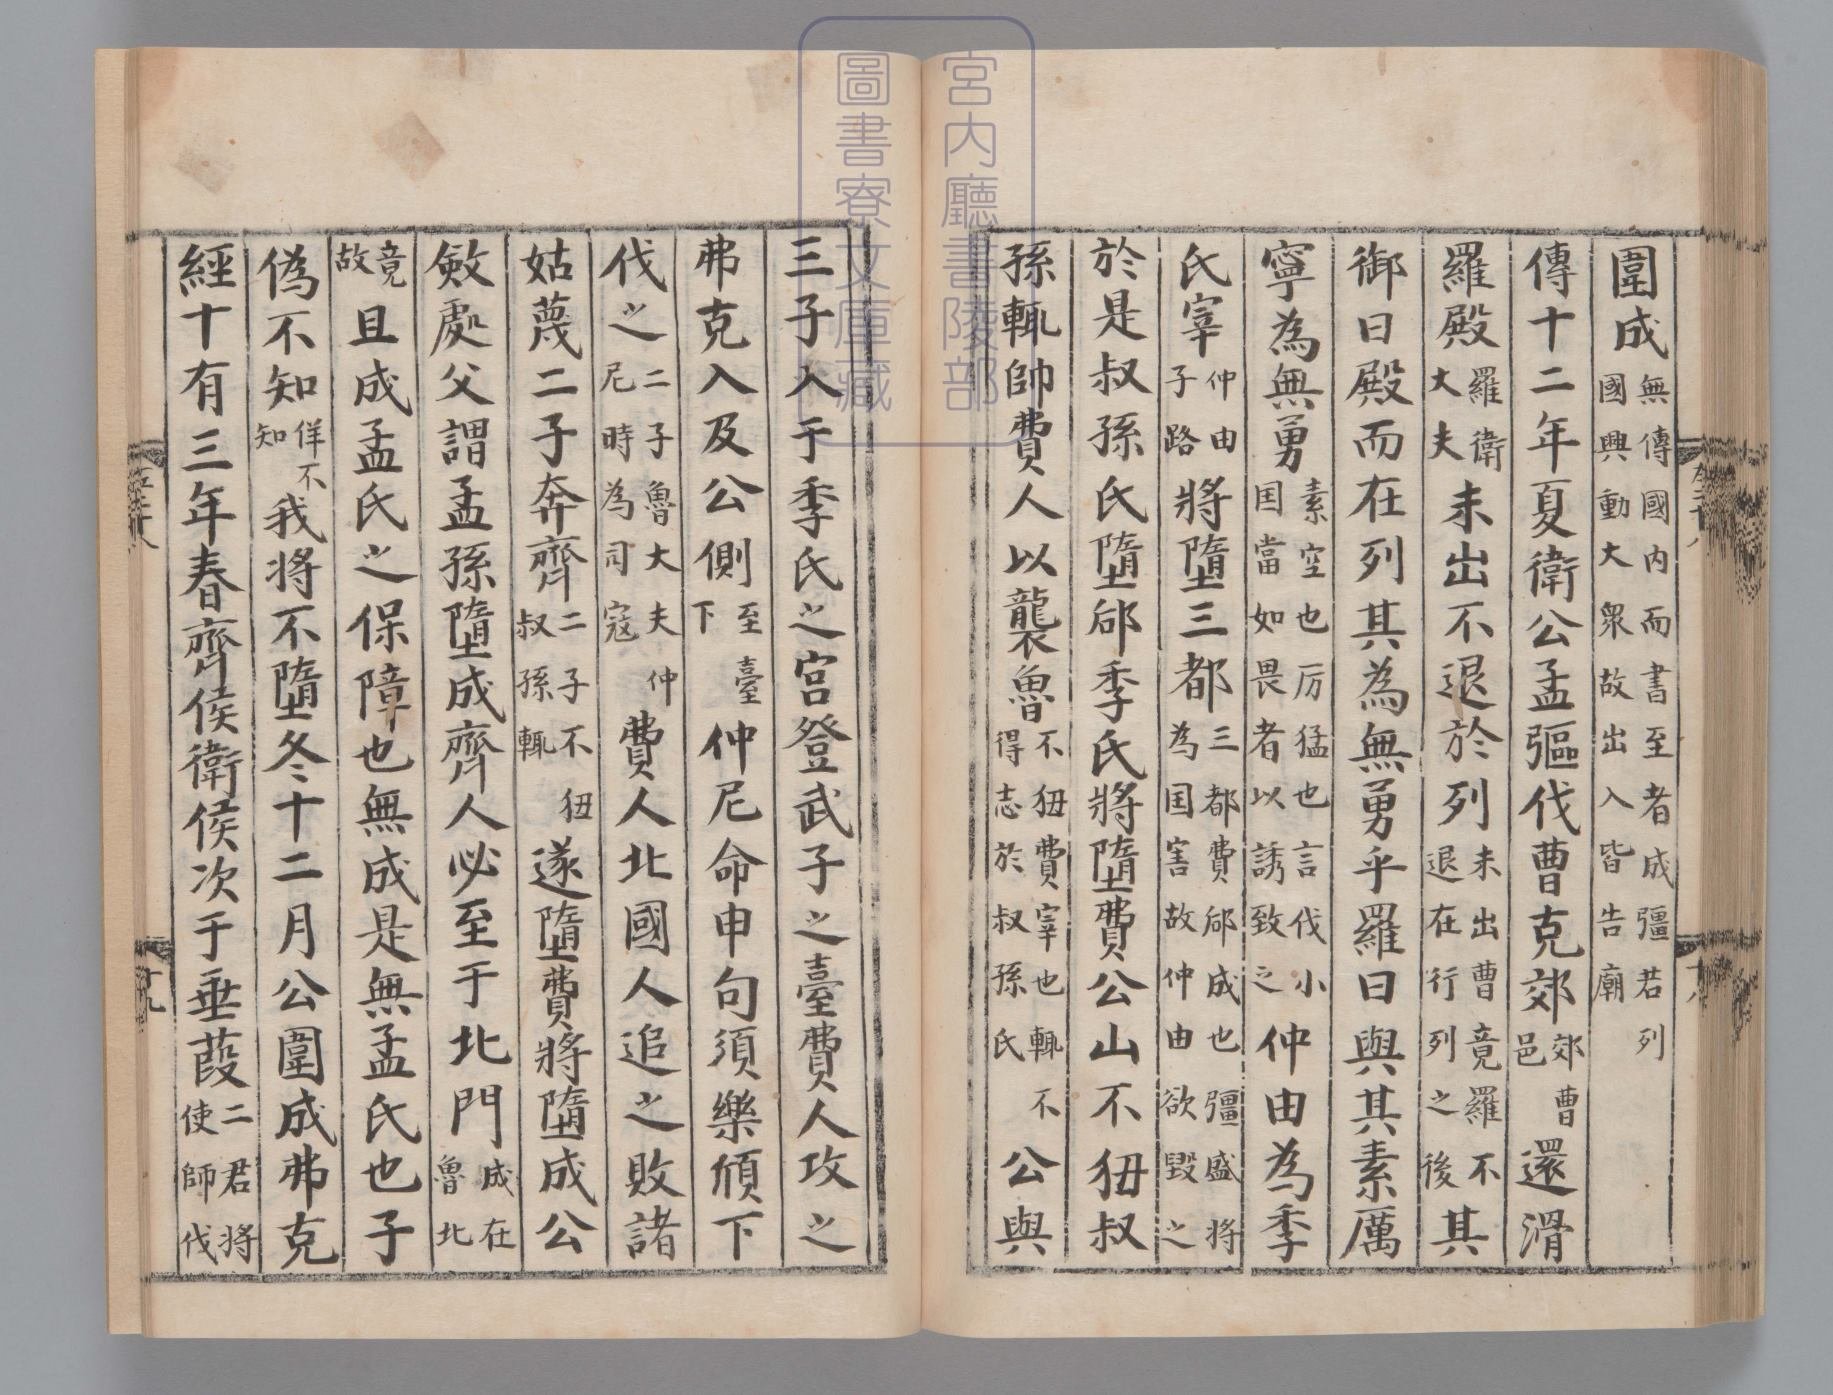 宮内廳書陵部
圖書寮文庫藏
圍成無傳國内而書至者成彊若列國興動大衆故出入皆告廟
傳十二年夏衛公孟彄伐曹克郊郊曹邑還滑
羅殿羅衛大夫未出不退於列未出曹竟羅不退在行列之後其
御曰殿而在列其為無勇乎羅曰與其素厲
寧為無勇素空也厉猛也言伐小国當如畏者以誘致之仲由為季
氏宰仲由子路將墮三都三都費郈成也彊盛將為国害故仲由欲毀之
於是叔孫氏墮郈季氏將墮費公山不狃叔
孫輒帥費人以襲魯不狃費宰也輒不得志於叔孫氏公與
三子入于季氏之宫登武子之臺費人攻之
弗克入及公側至臺下仲尼命申句須樂頎下
伐之二子魯大夫仲尼時為司寇費人北國人追之敗諸
姑蔑二子奔齊二子不狃叔孫輒遂墮費將墮成公
斂處父謂孟孫墮成齊人必至于北門成在魯北
竟故且成孟氏之保障也無成是無孟氏也子
偽不知佯不知我將不墮冬十二月公圍成弗克
經十有三年春齊侯衛侯次于垂葭二君將使師伐